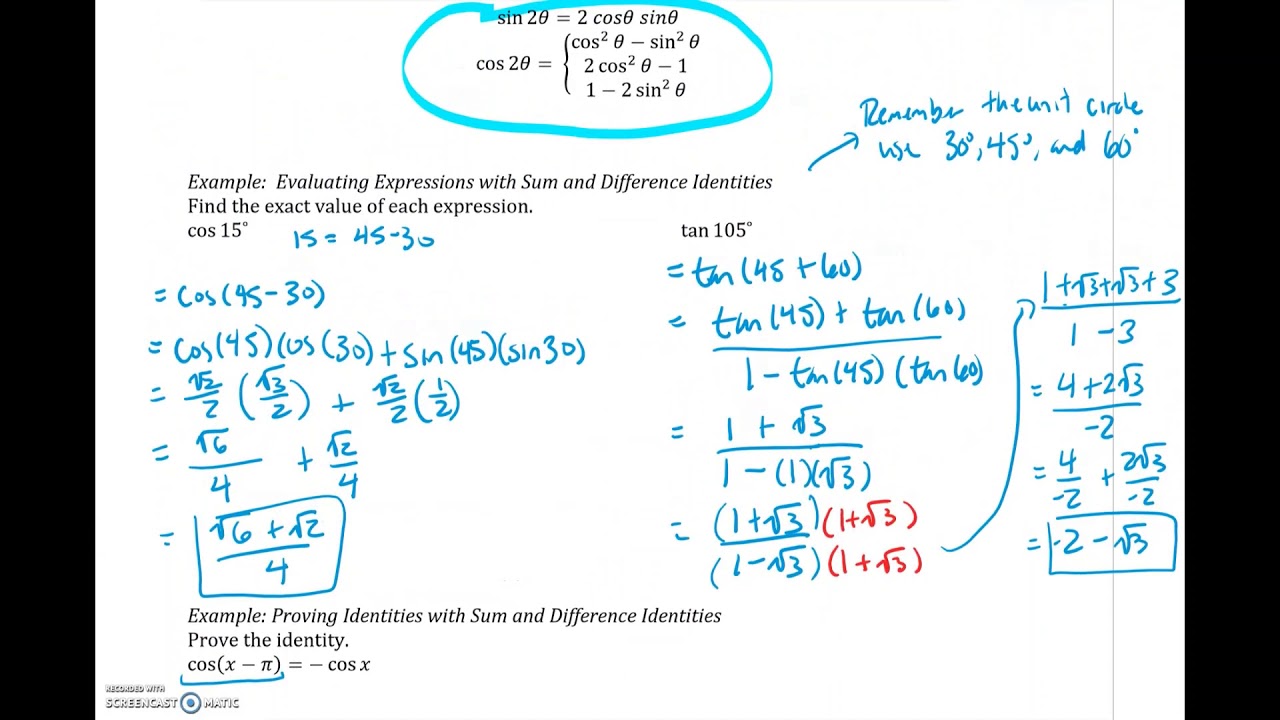 sin 2θ = 2 cosθ sinθ
cos 2θ = { cos² θ − sin² θ
2 cos² θ − 1
1 − 2 sin² θ
Remember the unit circle
use 30°, 45°, and 60°
Example: Evaluating Expressions with Sum and Difference Identities
Find the exact value of each expression.
cos 15°
15 = 45-30
= cos(45-30)
= cos(45)(cos(30) + sin(45)(sin30)
= √2/2 (√3/2) + √2/2 (1/2)
= √6/4 + √2/4
= √6 + √2 / 4
tan 105°
= tan(45 + 60)
= tan(45) + tan(60) / 1 - tan(45)(tan60)
= 1 + √3 / 1 - (1)(√3)
= (1+√3)(1+√3) / (1-√3)(1+√3)
1+√3+√3+3 / 1 - 3
= 4 + 2√3 / -2
= 4/-2 + 2√3/-2
= -2 - √3
Example: Proving Identities with Sum and Difference Identities
Prove the identity.
cos(x − π) = − cos x
RECORDED WITH
SCREENCAST MATIC